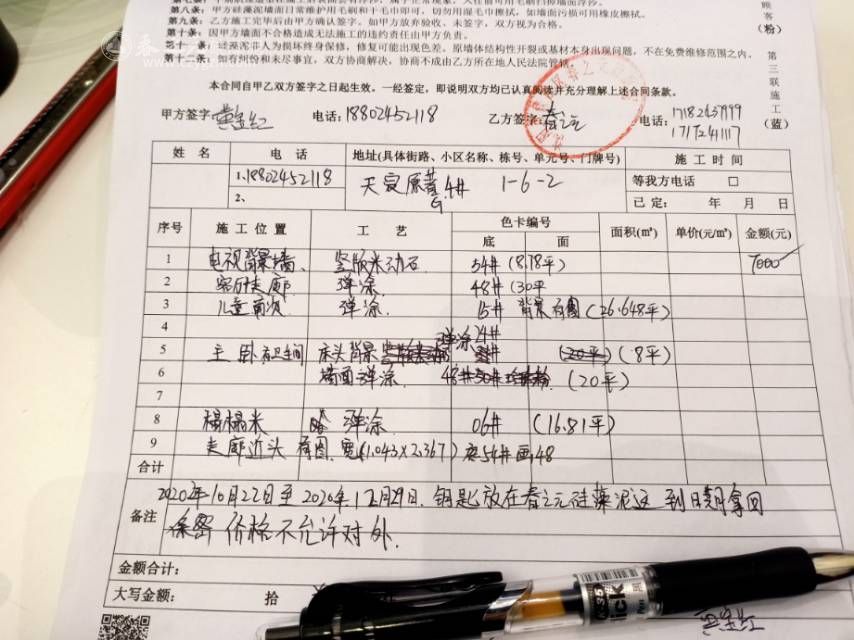 第九条：甲方硅藻泥墙日常维护用毛刷和干毛巾即可，墙勿用湿毛巾擦拭，如墙面污损可用橡皮擦拭。
第十条：乙方施工完毕后由甲方确认签字。如甲方放弃验收、未签字，双方视为合格。
因甲方墙面不合格造成无法施工的违约责任由甲方负责。
第十一条：硅藻泥非人为损坏终身保修，修复可能出现色差。原墙体结构性开裂或基材本身出现问题，不在免费维修范围之内。
第十二条：如有纠纷和未尽事宜，双方协商解决，协商不成由乙方所在地人民法院管辖。
本合同自甲乙双方签字之日起生效。一经签定，即说明双方均已认真阅读并充分理解上述合同条款。
顾客（粉）
第三联施工（蓝）
甲方签字 电话：18802452118 乙方签字：春之元 电话：
17172411117
姓 名 电 话 地址(具体街路、小区名称、栋号、单元号、门牌号) 施 工 时 间
1、18802452118 1-6-2 等我方电话 □
2、 已定： 年 月 日
序号 施 工 位 置 工 艺 色卡编号 面积(㎡) 单价(元/㎡) 金额(元)
底 面
1 电视背景墙、 竖版米动石 54# (8.78平) 7000
2 客厅走廊 弹涂 48# (30平
3 儿童 弹涂 15# 背景有图 (26.648平)
4 弹涂 24#
5 主卧 卫生间 床头背景 (20平) (8平)
6 墙面弹涂 48# (20平)
7
8 榻榻米 弹涂 06# (16.81平)
9 走廊近头 有图 宽(1.043×2.367) 底54# 画48
合计
备注 2020年10月22日至2020年12月29日.钥匙放在春之元硅藻泥运 到日期拿回
保密 价格不允许对外.
金额合计：
大写金额： 拾